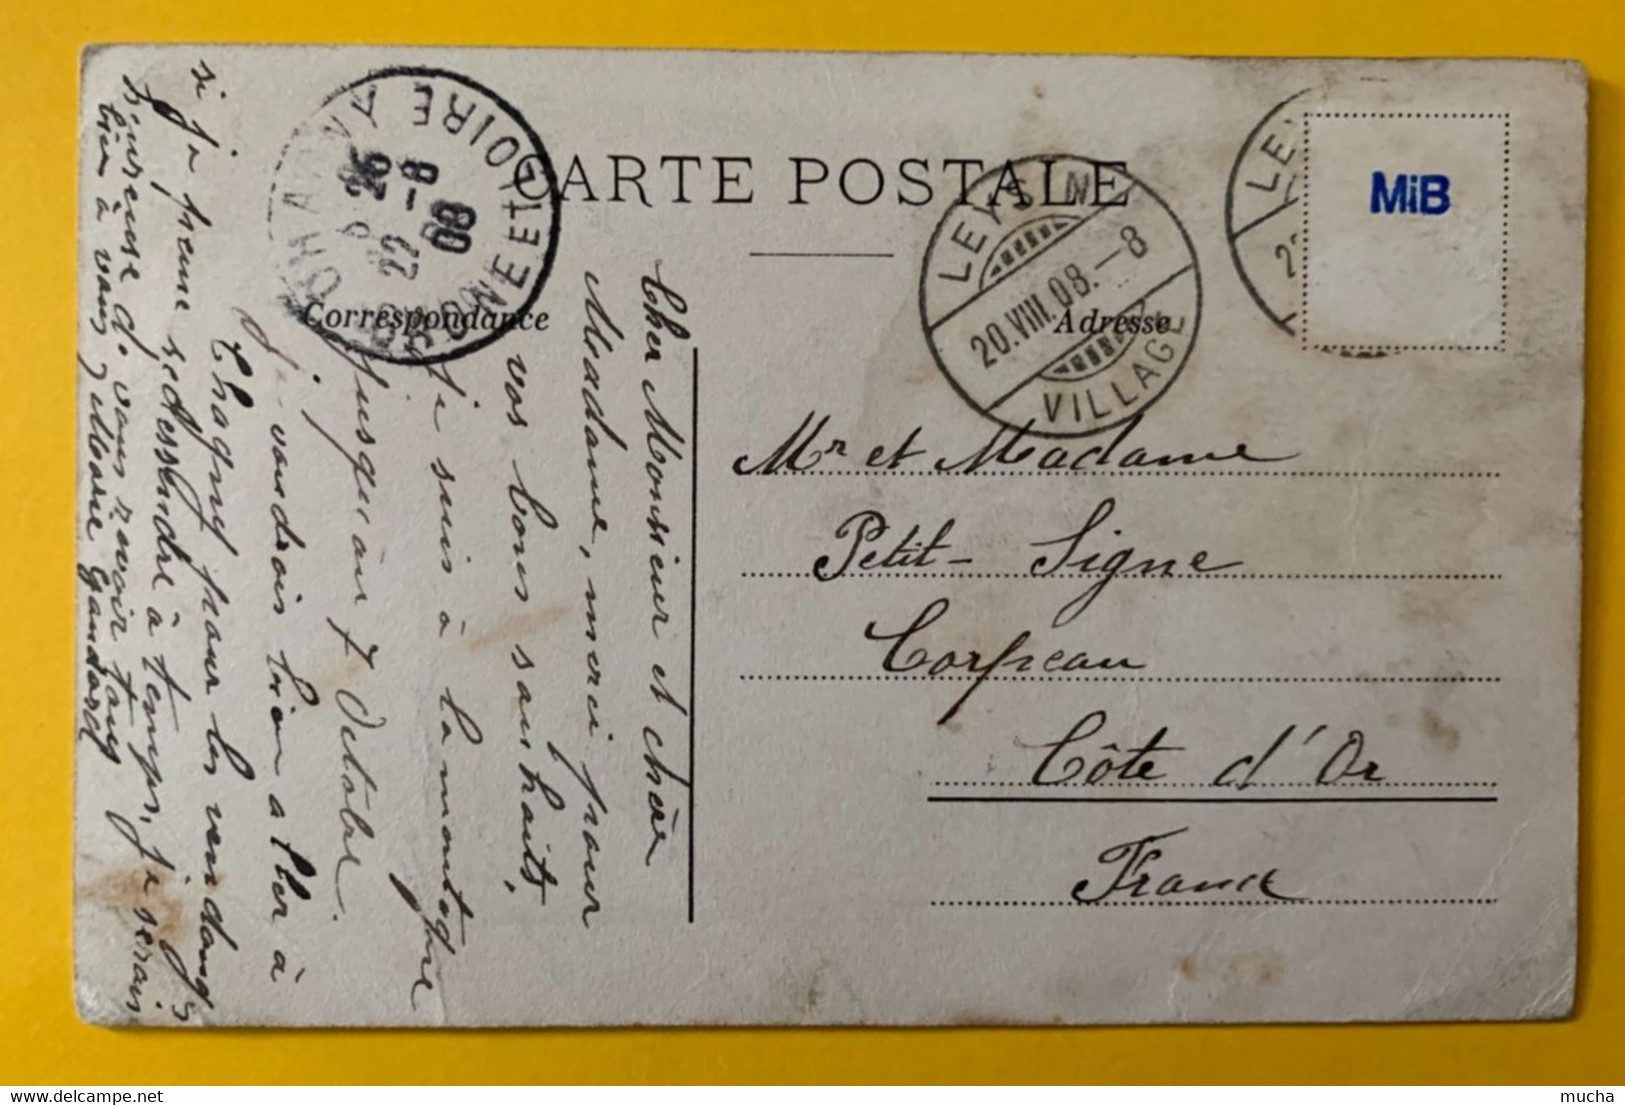 CARTE POSTALE
Correspondance
Adresse
LEYSIN
20.VIII.08.-8
VILLAGE
LEY
MiB
CHAGNY
22 -8
08
SAONE ET LOIRE
Mr et Madame
Petit-Signe
Corpeau
Côte d'Or
France
Cher Monsieur et chère
Meadame, merci pour
vos bons souhaits,
je suis à la montagne
jusqu'au 7 Octobre.
Je voudrais bien aller à
Chagny pour les vendang
si je peune redessendre à temps, je serais
heureuse de vous revoir tous
bien à vous, Marie Gandard
delcampe.net
mucha